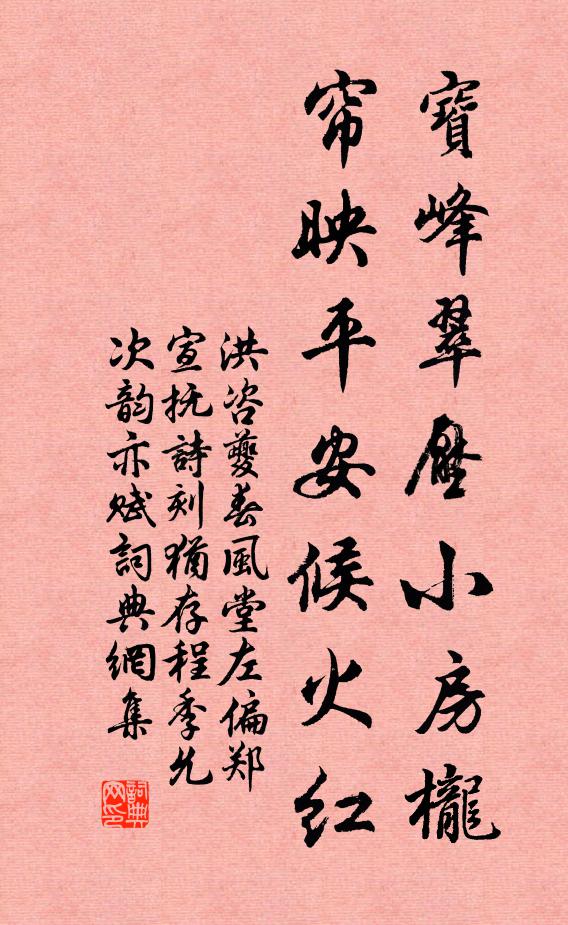 寶峰翠壓小房櫳
帘映平安候火红
洪咨夔春風堂左偏郑
宣抚詩刻猶存程季允
次韵亦赋詞典網集
詞典网印